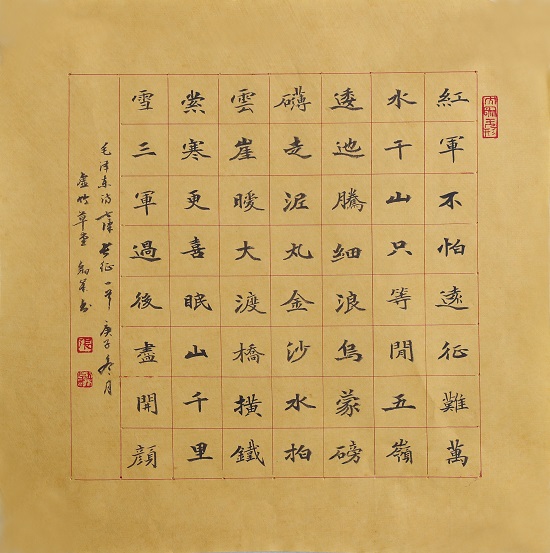 紅軍不怕遠征難萬
水千山只等閒五嶺
逶迆騰細浪烏蒙磅
礴走泥丸金沙水拍
雲崖暖大渡橋橫鐵
索寒更喜岷山千里
雪三軍過後盡開顏
毛泽东诗七律长征一首庚子冬月
虚竹草堂书